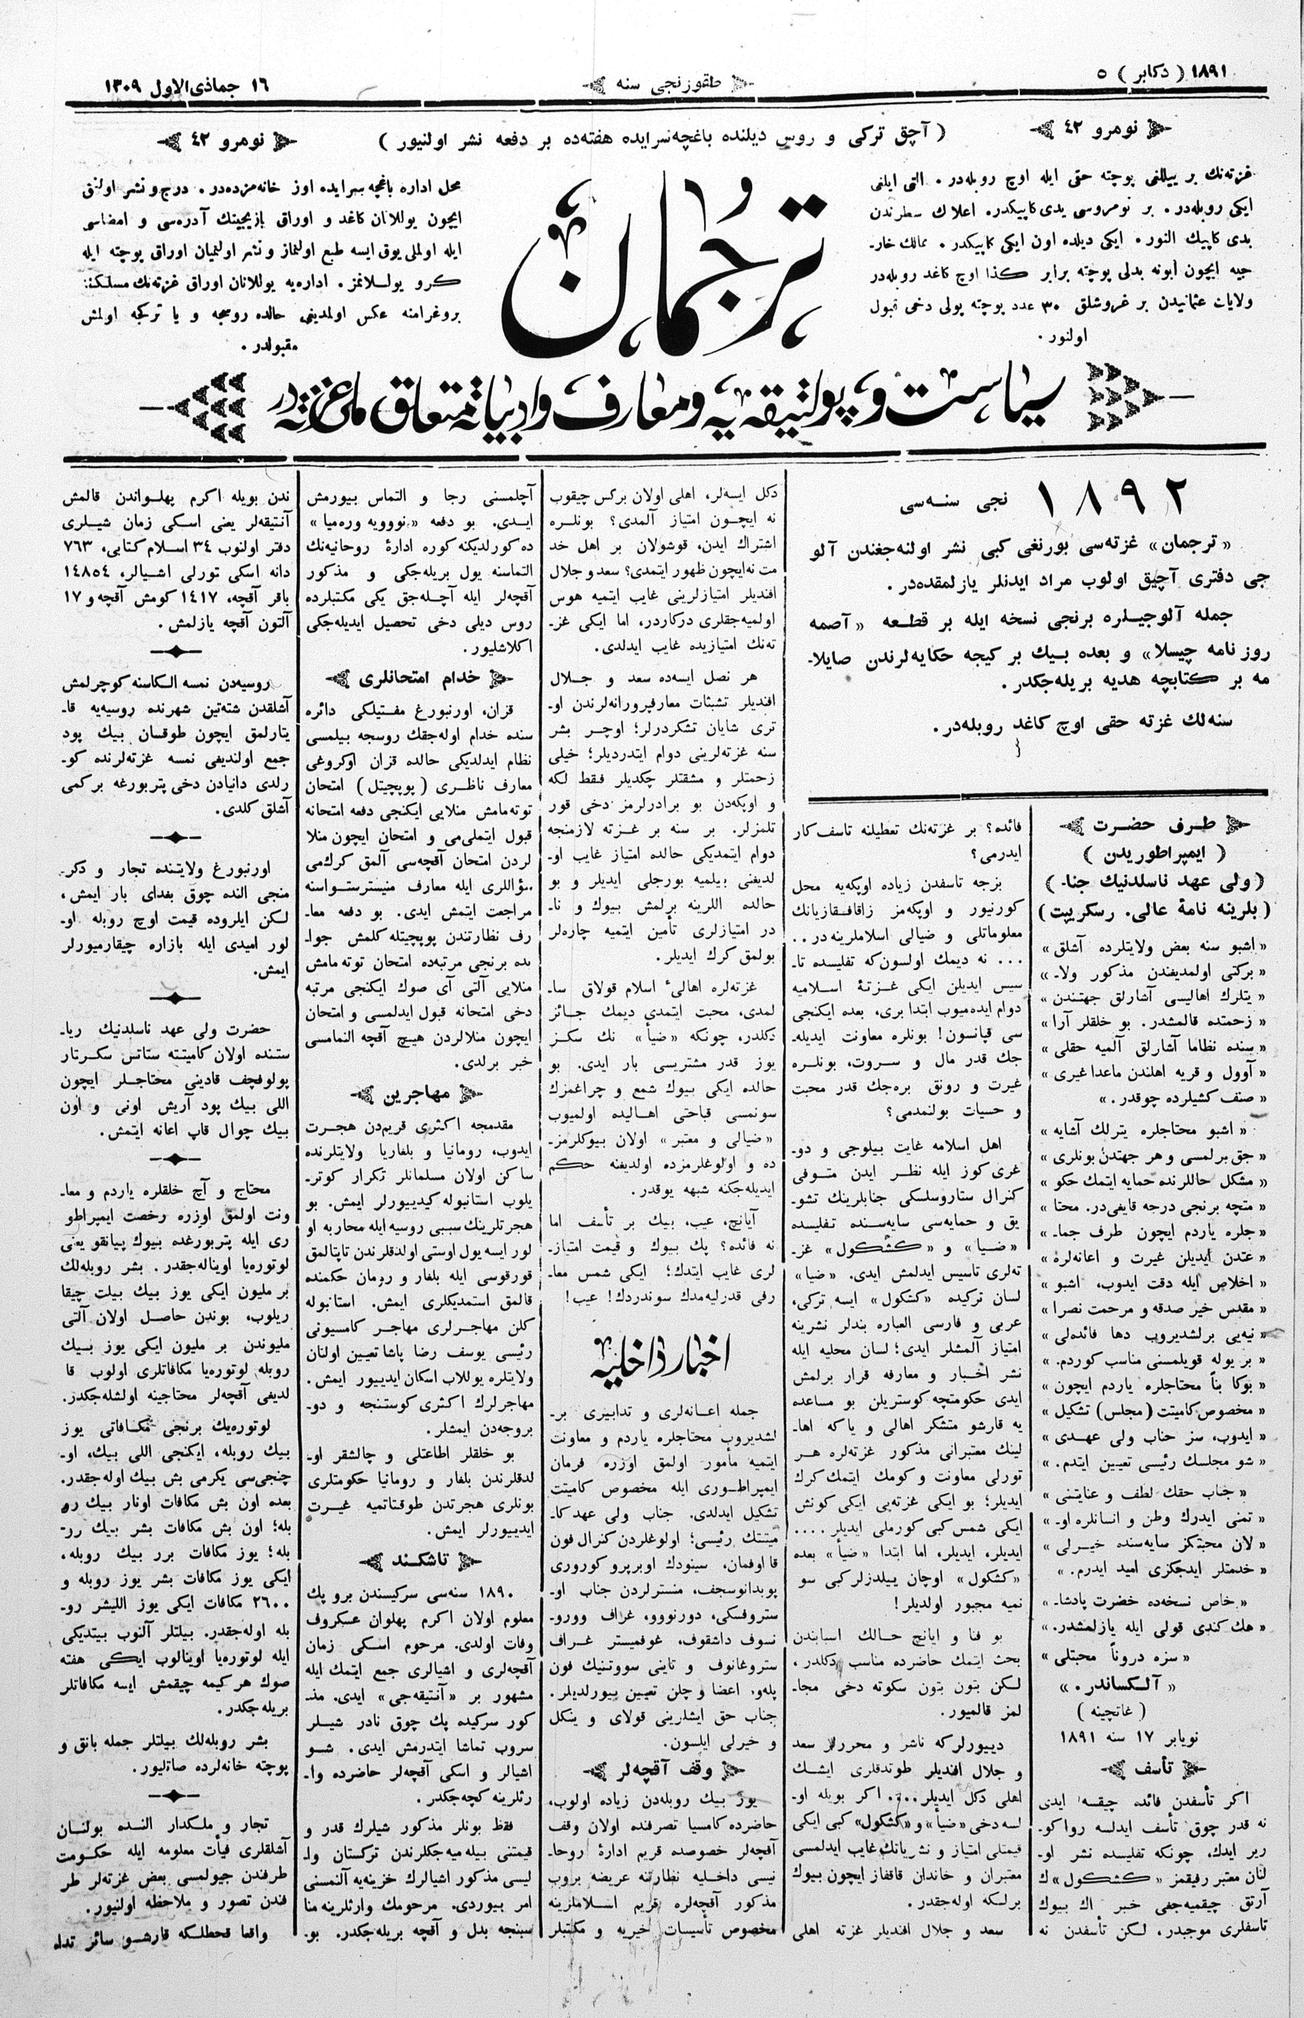 ١٨٩١ ( دكابر ) ٥
طقوزنجى سنه
١٦ جماذى‌الاول ١٣٠٩
نومرو ٤٢
( آچق تركى و روس ديلنده باغچه‌سرايده هفته‌ده بر دفعه نشر اولنيور )
نومرو ٤٢
غزته‌نك بر ييللغى پوچته حقى ايله اوچ روبله‌در. التى ايلغى
ايكى روبله‌در. بر نومروسى يدى كاپيكدر. اعلان سطرندن
يدى كاپيك النور. ايكى ديلده اون ايكى كاپيكدر. ممالك خار-
جيه ايچون آبونه بدلى پوچته برابر كذا اوچ كاغد روبله‌در
ولايات عثمانيدن بر غروشلق ٣٠ عدد پوچته پولى دخى قبول
اولنور.
ترجمان
محل اداره باغچه سرايده اوز خانه‌مزده‌در. درج و نشر اولنق
ايچون يوللانان كاغد و اوراق يازيجينك آدره‌سى و امضاسى
ايله اولملى يوق ايسه طبع اولنماز و نشر اولنميان اوراق پوچته ايله
كرو يوللانمز. اداره‌يه يوللانان اوراق غزته‌نك مسلكنه
بروغرامنه عكس اولمديغى حالده روسجه و يا تركجه اولمش
مقبولدر.
سياست و پولتيقه‌يه و معارف و ادبياته متعلق ملى غزته‌در
١٨٩٢ نجى سنه‌سى
«ترجمان» غزته‌سى بورنغى كبى نشر اولنه‌جغندن آلو
جى دفترى آچيق اولوب مراد ايدنلر يازلمقده‌در.
جمله آلوجيلره برنجى نسخه ايله بر قطعه «آصمه
روزنامه چيسلا» و بعده بيك بر كيجه حكايه‌لرندن صايلا-
مه بر كتابچه هديه بريله‌جكدر.
سنه‌لك غزته حقى اوچ كاغد روبله‌در.
طرف حضرت
( ايمپراطوريدن )
(ولى عهد ناسلدنيك جنا-)
(بلرينه نامهٔ عالى. رسكريپت)
«اشبو سنه بعض ولايتلرده آشلق»
«بركتى اولمديغندن مذكور ولا-»
«يتلرك اهاليسى آشارلق جهتندن»
«زحمتده قالمشدر. بو خلقلر آرا»
«سنده نظاما آشارلق آلميه حقلى»
«آوول و قريه اهلندن ماعدا غيرى»
«صنف كشيلرده چوقدر.»
«اشبو محتاجلره يترلك آشايه»
«جق برلمسى و هر جهتدن بونلرى»
«مشكل حاللرنده حمايه ايتمك حكو»
«متچه برنجى درجه قايغى‌در. محتا»
«جلره ياردم ايچون طرف جما-»
«عتدن ايديلن غيرت و اعانه‌لره»
«اخلاص ايله دقت ايدوب، اشبو»
«مقدس خير صدقه و مرحمت نصرا»
«نيه‌يى برلشديروب دها فائده‌لى»
«بر يوله قويلمسنى مناسب كوردم.»
«بوكا بناً محتاجلره ياردم ايچون»
«مخصوص كاميتت (مجلس) تشكيل»
«ايدوب، سز جناب ولى عهدى»
«شو مجلسك رئيسى تعيين ايتدم.»
«جناب حقك لطف و عنايتنى»
«تمنى ايدرك وطن و انسانلره او-»
«لان محبتكز سايه‌سنده خيرلى»
«خدمتلر ايدجكزى اميد ايدرم.»
«خاص نسخه‌ده حضرت پادشا-»
«هك كندى قولى ايله يازلمشدر.»
«سزه دروناً محبتلى»
«آلكساندر.»
(غاتچينه)
نويابر ١٧ سنه ١٨٩١
تأسف
اكر تأسفدن فائده چيقمه ايدى
نه قدر چوق تأسف ايدلسه رواكو-
رير ايدك، چونكه تفليسده نشر او-
لنان معتبر رفيقمز «كشكول»ك
آرتق چيقميه‌جغى خبر اك بيوك
تأسفلرى موجبدر، لكن تأسفدن نه
فائده؟ بر غزته‌نك تعطيلنه تاسف كار
ايدرمى؟
بزجه تاسفدن زياده اوپكه‌يه محل
كورنيور و اوپكه‌مز زاقافقازيانك
معلوماتلى و ضيالى اسلاملرينه در..
... نه ديمك اولسون كه تفليسده تا-
سيس ايديلن ايكى غزتهٔ اسلاميه
دوام ايده‌ميوب ابتدا برى، بعده ايكنجى
سى قپانسون! بونلره معاونت ايديله-
جك قدر مال و سروت، بونلره
غيرت و رونق بره‌جك قدر محبت
و حسيات بولنمدمى؟
اهل اسلامه غايت بيلوجى و دو-
غرى كوز ايله نظر ايدن متوفى
كنرال ستاروسلسكى جنابلرينك تشو-
يق و حمايه‌سى سايه‌سنده تفليسده
«ضيا» و «كشكول» غز-
ته‌لرى تأسيس ايدلمش ايدى. «ضيا»
لسان تركيده «كشكول» ايسه تركى،
عربى و فارسى العباره بندلر نشرينه
امتياز آلمشلر ايدى؛ لسان محليه ايله
نشر اخبار و معارفه قرار برلمش
ايدى حكومتچه كوستريلن بو مساعده
يه قارشو متشكر اهالى و ياكه اها-
لينك معتبرانى مذكور غزته‌لره هر
تورلى معاونت و كومك ايتمك كرك
ايديلر؛ بو ايكى غزته‌يى ايكى كونش
ايكى شمس كبى كورملى ايديلر....
ايديلر، ايديلر، اما ابتدا «ضيأ» بعده
«كشكول» اوچان ييلدزلر كبى سو
نميه مجبور اولديلر!
بو فنا و ايانچ حالك اسبابندن
بحث ايتمك حاضرده مناسب دكلدر،
لكن بتون بتون سكوته دخى مجا-
لمز قالميور.
دييورلركه ناشر و محررلر سعد
و جلال افنديلر طوتدقلرى ايشك
اهلى دكل ايديلر... اكر بويله او-
لسه دخى «ضيأ» و «كشكول» كبى ايكى
قيمتلى امتياز و نشرياتك غايب ايدلمسى
معتبران و خاندان قافقاز ايچون بيوك
برلكه اوله‌جقدر.
سعد و جلال افنديلر غزته اهلى
دكل ايسه‌لر، اهلى اولان بركس چيقوب
نه ايچون امتياز آلمدى؟ بونلره
اشتراك ايدن، قوشولان بر اهل خد
مت نه‌ايچون ظهور ايتمدى؟ سعد و جلال
افنديلر امتيازلرينى غايب ايتميه هوس
اولميه‌جقلرى دركاردر، اما ايكى غز-
ته‌نك امتيازيده غايب ايدلدى.
هر نصل ايسه‌ده سعد و جلال
افنديلر تشبثات معارفپرورانه‌لرندن او-
ترى شايان تشكردرلر؛ اوچر بشر
سنه غزته‌لرينى دوام ايتدرديلر؛ خيلى
زحمتلر و مشقتلر چكديلر فقط لكه
و اوپكه‌دن بو برادرلرمز دخى قور
تلمزلر. بر سنه بر غزته لازمنجه
دوام ايتمديكى حالده امتياز غايب او-
لديغنى بيلميه بورجلى ايديلر و بو
حالده اللرينه برلمش بيوك و نا-
در امتيازلرى تأمين ايتميه چاره‌لر
بولمق كرك ايديلر.
غزته‌لره اهالىٔ اسلام قولاق سا-
لمدى، محبت ايتمدى ديمك جائز
دكلدر، چونكه «ضيأ» نك سكز
يوز قدر مشتريسى بار ايدى. بو
حالده ايكى بيوك شمع و چراغمزك
سونمسى قباحتى اهاليده اولميوب
«ضيالى و معتبر» اولان بيوكلرمز-
ده و اولوغلرمزده اولديغنه حكم
ايديله‌جكنه شبهه يوقدر.
آيانچ، عيب، بيك بر تأسف اما
نه فائده؟ پك بيوك و قيمت امتياز-
لرى غايب ايتدك؛ ايكى شمس معا-
رفى قدرليه‌مدك سوندردك! عيب!
اخبار داخليه
جمله اعانه‌لرى و تدابيرى بر-
لشديروب محتاجلره ياردم و معاونت
ايتميه مأمور اولمق اوزره فرمان
ايمپراطورى ايله مخصوص كاميتت
تشكيل ايدلدى. جناب ولى عهد كا-
ميتتك رئيسى؛ اولوغلردن كنرال فون
قاوفمان، سينودك اوبرپروكورورى
پوبدانوسجف، منسترلردن جناب او-
ستروفسكى، دورنووو، غراف وورو-
نسوف داشقوف، غوفميستر غراف
ستروغانوف و تاينى سووتنيك فون
پله‌و، اعضا و چلن تعيين بيورلديلر.
جناب حق ايشلرينى قولاى و ينكل
و خيرلى ايلسون.
وقف آقچه‌لر
يوز بيك روبله‌دن زياده اولوب،
حاضرده كامسيا تصرفنده اولان وقف
آقچه‌لر خصوصده قريم ادارهٔ روحا-
نيسى داخليه نظارتنه عريضه بروب
مذكور آقچه‌لره قريم اسلاملرينه
مخصوص تأسيسات خيريه و مكتبلر
آچلمسنى رجا و التماس بيورمش
ايدى. بو دفعه «نوويه وره‌ميا»
ده كورلديكنه كوره ادارهٔ روحانيه‌نك
التماسنه يول بريله‌جكى و مذكور
آقچه‌لر ايله آچله‌جق يكى مكتبلرده
روس ديلى دخى تحصيل ايديله‌جكى
اكلاشليور.
خدام امتحانلرى
قزان، اورنبورغ مفتيلكى دائره
سنده خدام اوله‌جقك روسجه بيلمسى
نظام ايدلديكى حالده قزان اوكروغى
معارف ناظرى (پوپچيتل) امتحان
توته‌مامش منلايى ايكنجى دفعه امتحانه
قبول ايتملى‌مى و امتحان ايچون منلا
لردن امتحان آقچه‌سى آلمق كرك‌مى
سؤاللرى ايله معارف منيسترستواسنه
مراجعت ايتمش ايدى. بو دفعه معا-
رف نظارتندن پوپچيتله كلمش جوا-
بده برنجى مرتبه‌ده امتحان توته‌مامش
منلايى آلتى آى صوك ايكنجى مرتبه
دخى امتحانه قبول ايدلمسى و امتحان
ايچون منلالردن هيچ آقچه النمامسى
خبر برلدى.
مهاجرين
مقدمجه اكثرى قريم‌دن هجرت
ايدوب، رومانيا و بلغاريا ولايتلرنده
ساكن اولان مسلمانلر تكرار كوتر-
يلوب استانبوله كيدييورلر ايمش. بو
هجرتلرينك سببى روسيه ايله محاربه او
لور ايسه يول اوستى اولدقلرندن تاپتالمق
قورقوسى ايله بلغار و رومان حكمنده
قالمق استمديكلرى ايمش. استانبوله
كلن مهاجرلرى مهاجر كامسيونى
رئيسى يوسف رضا پاشا تعيين اولنان
ولايتلره يوللاب اسكان ايدييور ايمش.
مهاجرلرك اكثرى كوستنجه و دو-
بروجه‌دن ايمشلر.
بو خلقلر اطاعتلى و چالشقر او-
لدقلرندن بلغار و رومانيا حكومتلرى
بونلرى هجرتدن طوقتاتميه غيرت
ايدييورلر ايمش.
تاشكند
١٨٩٠ سنه‌سى سركيسندن برو پك
معلوم اولان اكرم پهلوان عسكروف
وفات اولدى. مرحوم اسكى زمان
آقچه‌لرى و اشيالرى جمع ايتمك ايله
مشهور بر «آنتيقه‌جى» ايدى. مذ-
كور سركيده پك چوق نادر شيلر
سروب تماشا ايتدرمش ايدى. شو
اشيالر و اسكى آقچه‌لر حاضرده وا-
رثلرينه كچه‌جكدر.
فقط بونلر مذكور شيلرك قدر و
قيمتنى بيله‌ميه‌جكلرندن تركستان وا-
ليسى مذكور اشيالرك خزينه‌يه آلنمسنى
امر بيوردى. مرحومك وارثلرينه منا
سبنجه بدل و آقچه بريله‌جكدر. بو-
ندن بويله اكرم پهلواندن قالمش
آنتيقه‌لر يعنى اسكى زمان شيلرى
دفتر اولنوب ٣٤ اسلام كتابى، ٧٦٣
دانه اسكى تورلى اشيالر، ١٤٨٥٤
باقر آقچه، ١٤١٧ كومش آقچه و ١٧
آلتون آقچه يازلمش.
روسيه‌دن نمسه الكاسنه كوچرلمش
آشلقدن شته‌تين شهرنده روسيه‌يه قا-
يتارلمق ايچون طوقسان بيك پود
جمع اولنديغى نمسه غزته‌لرنده كو-
رلدى دانيادن دخى پتربورغه بر كمى
آشلق كلدى.
اورنبورغ ولايتنده تجار و دكر-
منجى النده چوق بغداى بار ايمش،
لكن ايلروده قيمت اوچ روبله او-
لور اميدى ايله بازاره چيقارميورلر
ايمش.
حضرت ولى عهد ناسلدنيك ريا-
ستنده اولان كاميتته ستاتس سكرتار
پولوفچف قادينى محتاجلر ايچون
اللى بيك پود آريش اونى و اون
بيك چوال قاپ اعانه ايتمش.
محتاج و آچ خلقلره ياردم و معا-
ونت اولمق اوزره رخصت ايمپراطو
رى ايله پتربورغده بيوك پيانقو يعنى
لوتوره‌يا اويناله‌جقدر. بشر روبله‌لك
بر مليون ايكى يوز بيك بيلت چيقا
ريلوب، بوندن حاصل اولان آلتى
مليوندن بر مليون ايكى يوز بيك
روبله لوتوره‌يا مكافاتلرى اولوب قا
لديغى آقچه‌لر محتاجينه اولشله‌جكدر.
لوتوره‌يك برنجى مكافاتى يوز
بيك روبله، ايكنجى اللى بيك، او-
چنجى‌سى يكرمى بش بيك اوله‌جقدر.
بعده اون بش مكافات اونار بيك رو
بله؛ اون بش مكافات بشر بيك رو-
بله؛ يوز مكافات برر بيك روبله،
ايكى يوز مكافات بشر يوز روبله و
٢٦٠٠ مكافات ايكى يوز اللشر رو-
بله اوله‌جقدر. بيلتلر آلنوب بيتديكى
ايله لوتوره‌يا اوينالوب ايكى هفته
صوك هر كيمه چيقمش ايسه مكافاتلر
بريله‌جكدر.
بشر روبله‌لك بيلتلر جمله بانق و
پوچته خانه‌لرده صاتليور.
تجار و ملكدار النده بولنان
آشلقلرى فيأت معلومه ايله حكومت
طرفندن جيولمسى بعض غزته‌لر طر
فندن تصور و ملاحظه اولنيور.
واقعا قحطلكه قارشو سائر تدا-